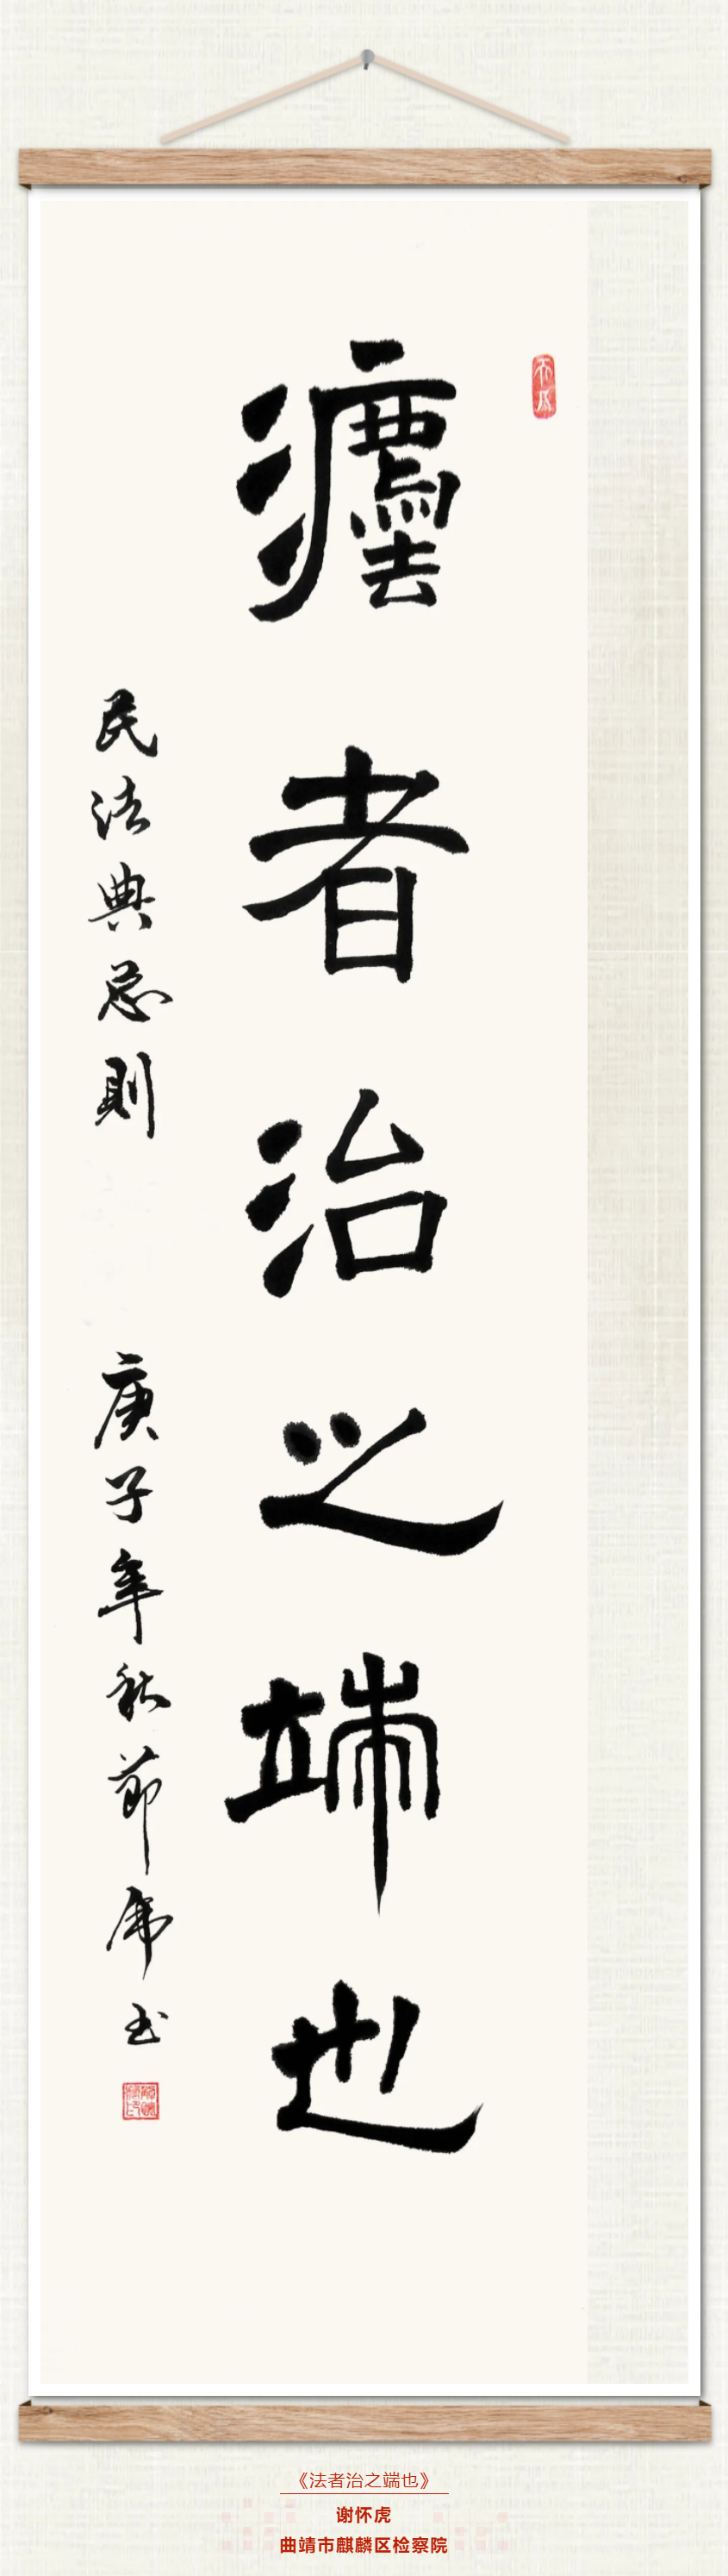 灋者治之端也
民法典总則
庚子年秋節虎书
《法者治之端也》
谢怀虎
曲靖市麒麟区检察院